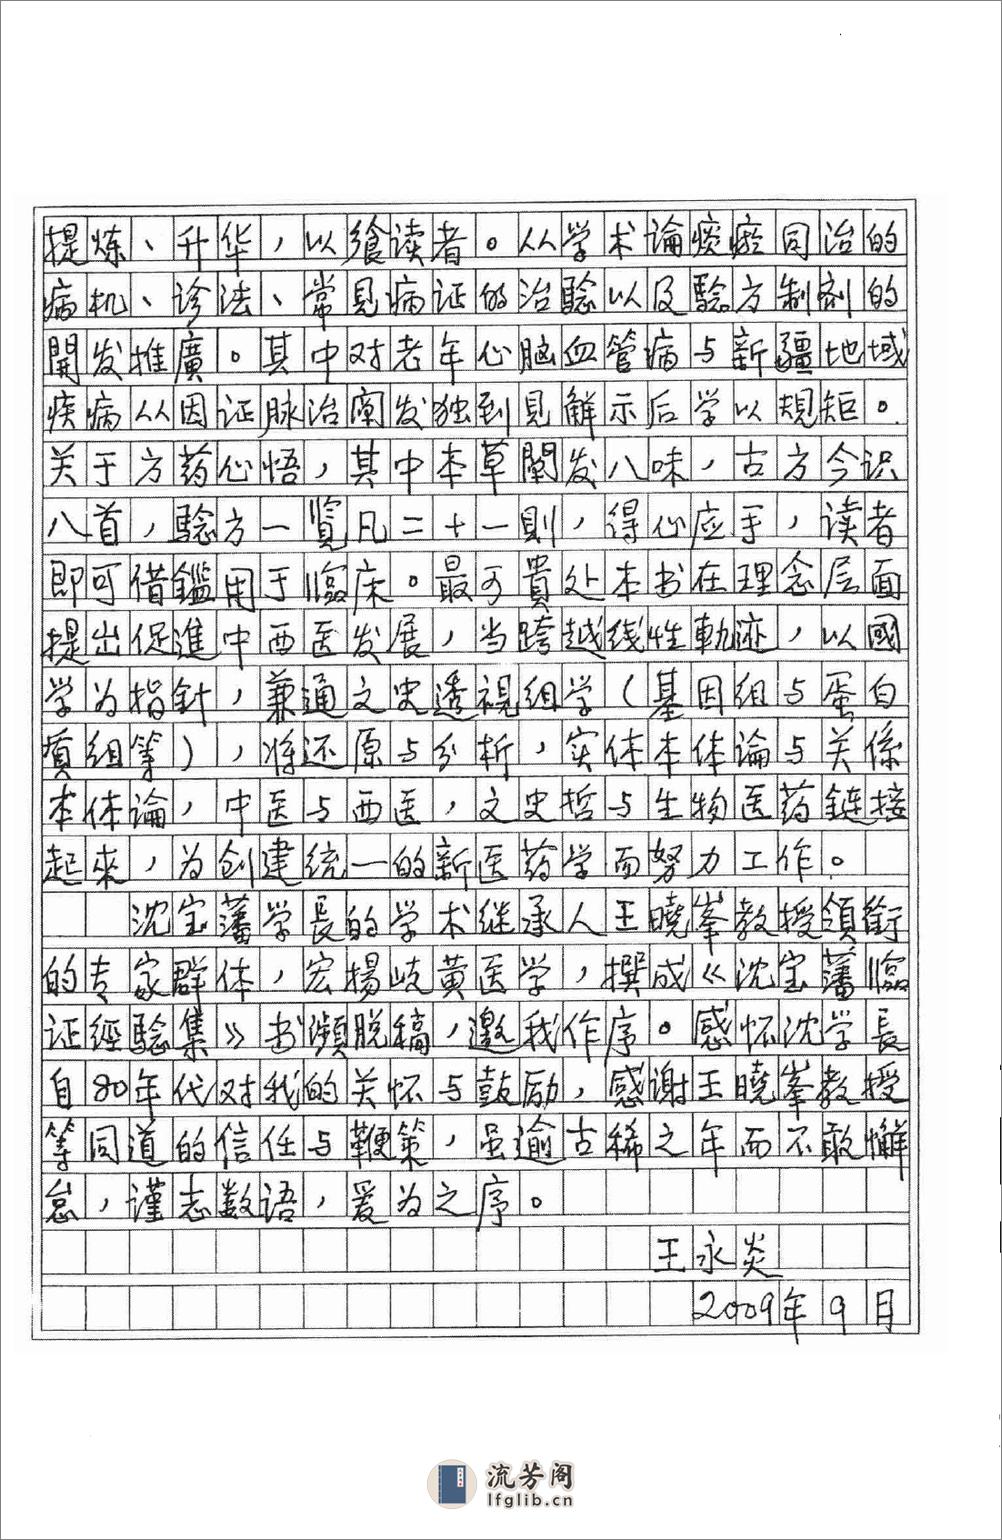 提炼、升华，以飨读者。从学术论痰瘀同治的
病机、诊法、常見病证的治騐以及騐方制剂的
開发推廣。其中对老年心脑血管病与新疆地域
疾病从因证脉治阐发独到見解示后学以規矩。
关于方药心悟，其中本草闡发八味，古方今识
八首，騐方一覧凡二十一則，得心应手，读者
即可借鑑用于临床。最可貴处本书在理念层面
提出促進中西医发展，当跨越线性軌迹，以國
学为指針，兼通文史透視组学（基因组与蛋白
质组等），将还原与分析，实体本体论与关係
本体论，中医与西医，文史哲与生物医药鏈接
起來，为创建统一的新医药学而努力工作。
沈宝藩学長的学术继承人王曉峯教授領銜
的专家群体，宏揚岐黄医学，撰成《沈宝藩临
证經騐集》书濒脱稿，邀我作序。感怀沈学長
自80年代对我的关怀与鼓励，感谢王曉峯教授
等同道的信任与鞭策，虽逾古稀之年而不敢懈
怠，谨志数语，爰为之序。
王永炎
2009年9月
流芳阁
lfglib.cn